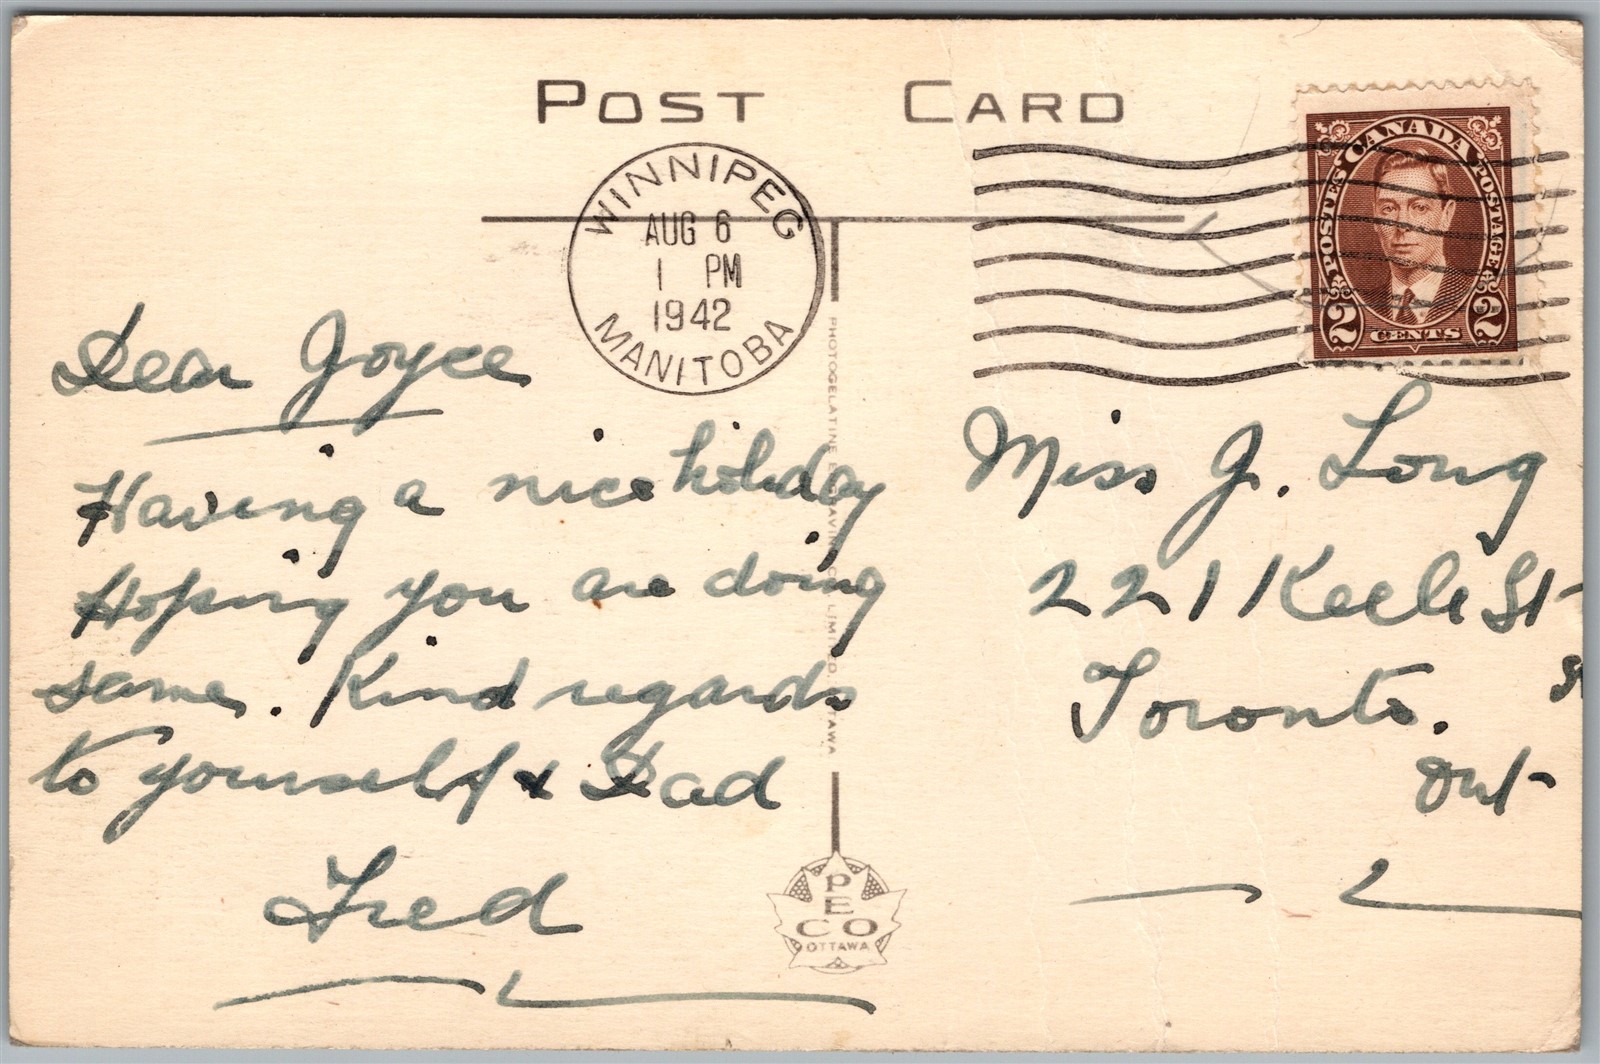 POST CARD
WINNIPEG
AUG 6
1 PM
1942
MANITOBA
POSTES CANADA POSTAGE
2 CENTS 2
Dear Joyce
Having a nice holiday
Hoping you are doing
same. Kind regards
to yourself & Dad
Fred
Miss J. Long
221 Keele St
Toronto.
Ont
PHOTOGELATINE ENGRAVING CO. LIMITED OTTAWA
PECO
OTTAWA